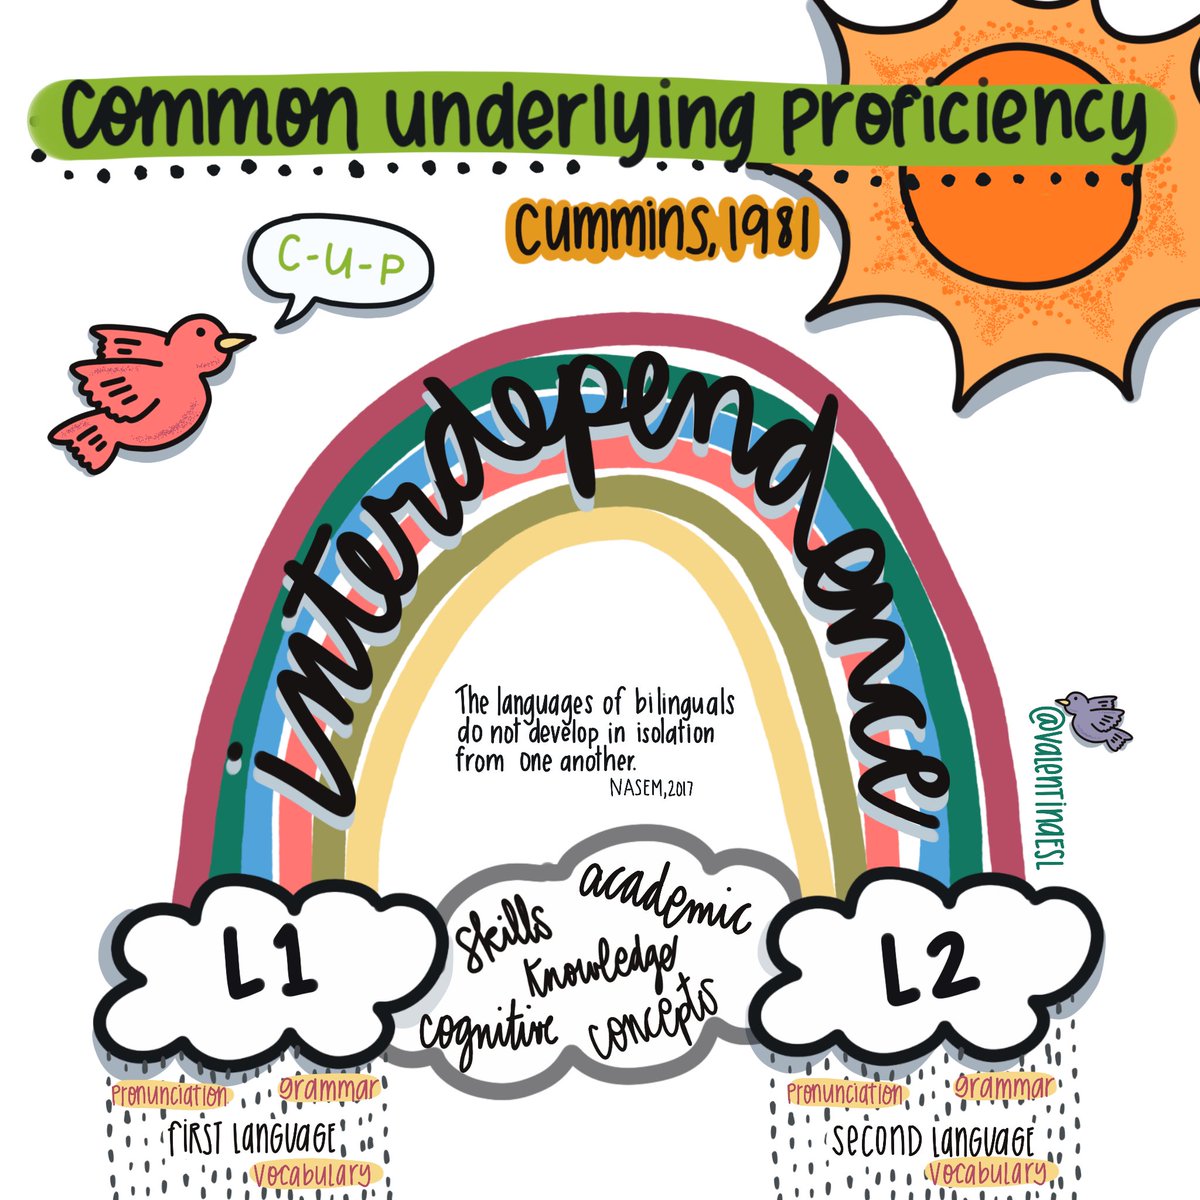 Common underlying proficiency
Cummins, 1981
C-U-P
Interdependence
The languages of bilinguals
do not develop in isolation
from one another.
NASEM, 2017
@valentinaESL
L1
skills
academic
knowledge
cognitive
concepts
L2
Pronunciation
grammar
first language
vocabulary
Pronunciation
grammar
second language
vocabulary